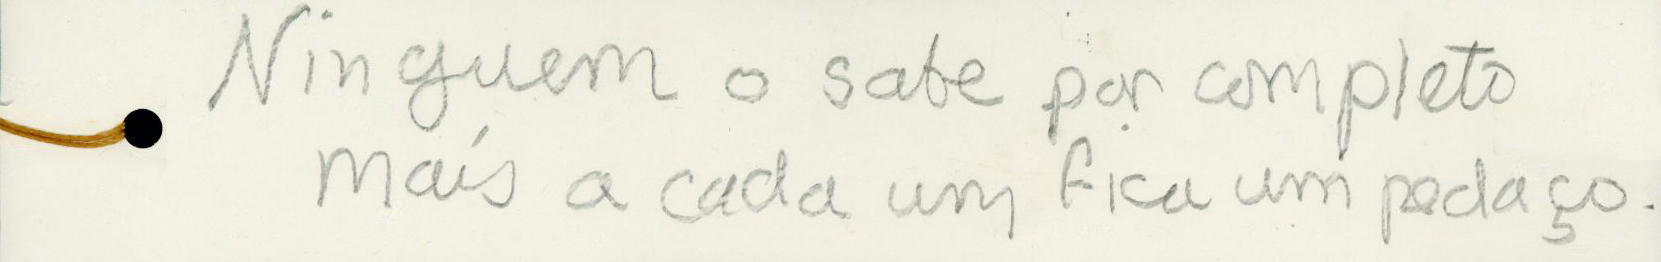 Ninguem o sabe por completo
mais a cada um fica um pedaço.